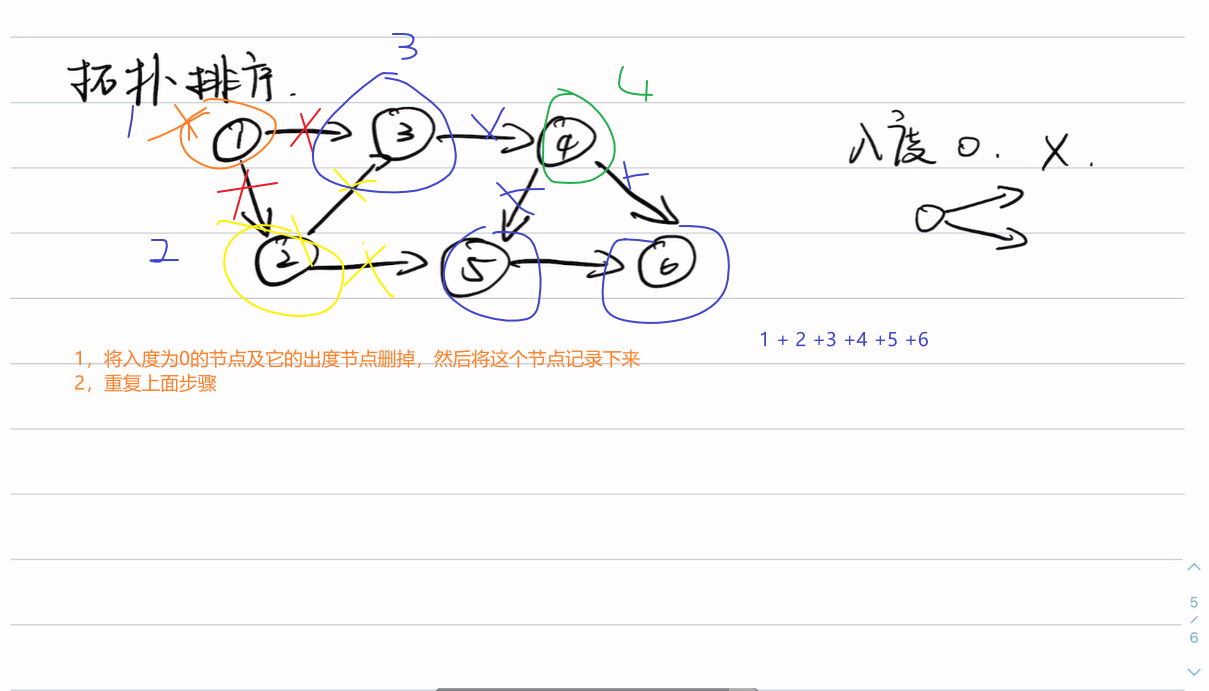 拓扑排序.
3
4
1
1
3
4
入度 0. X.
2
2
5
6
1 + 2 +3 +4 +5 +6
1，将入度为0的节点及它的出度节点删掉，然后将这个节点记录下来
2，重复上面步骤
5
/
6